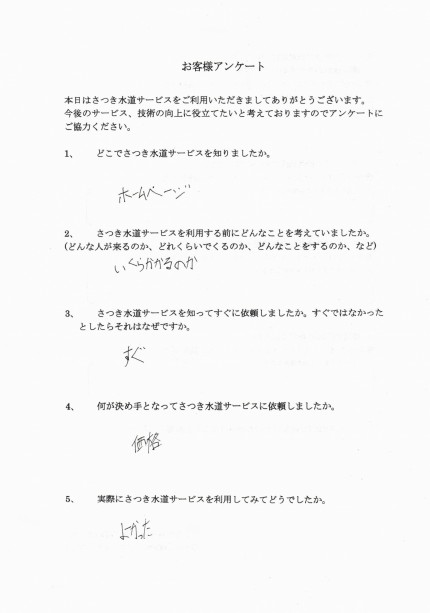 お客様アンケート
本日はさつき水道サービスをご利用いただきましてありがとうございます。
今後のサービス、技術の向上に役立てたいと考えておりますのでアンケートに
ご協力ください。
1、 どこでさつき水道サービスを知りましたか。
ホームページ
2、 さつき水道サービスを利用する前にどんなことを考えていましたか。
(どんな人が来るのか、どれくらいでくるのか、どんなことをするのか、など)
いくらかかるのか
3、 さつき水道サービスを知ってすぐに依頼しましたか。すぐではなかった
としたらそれはなぜですか。
すぐ
4、 何が決め手となってさつき水道サービスに依頼しましたか。
価格
5、 実際にさつき水道サービスを利用してみてどうでしたか。
よかった